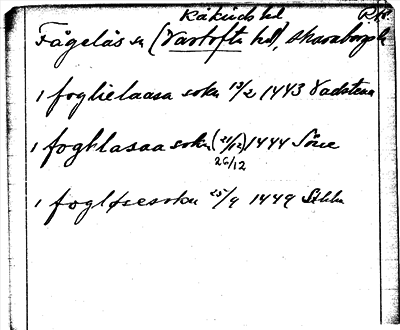 Kåkinds hd
Fågelås sn (Vartofta hd), Skaraborgs l
i foglielaasa sokn 13/2 1443 Vadstena
i foghlasaa sokn (21/12) 1444 Söne
26/12
i fogløsesokn 25/9 1449